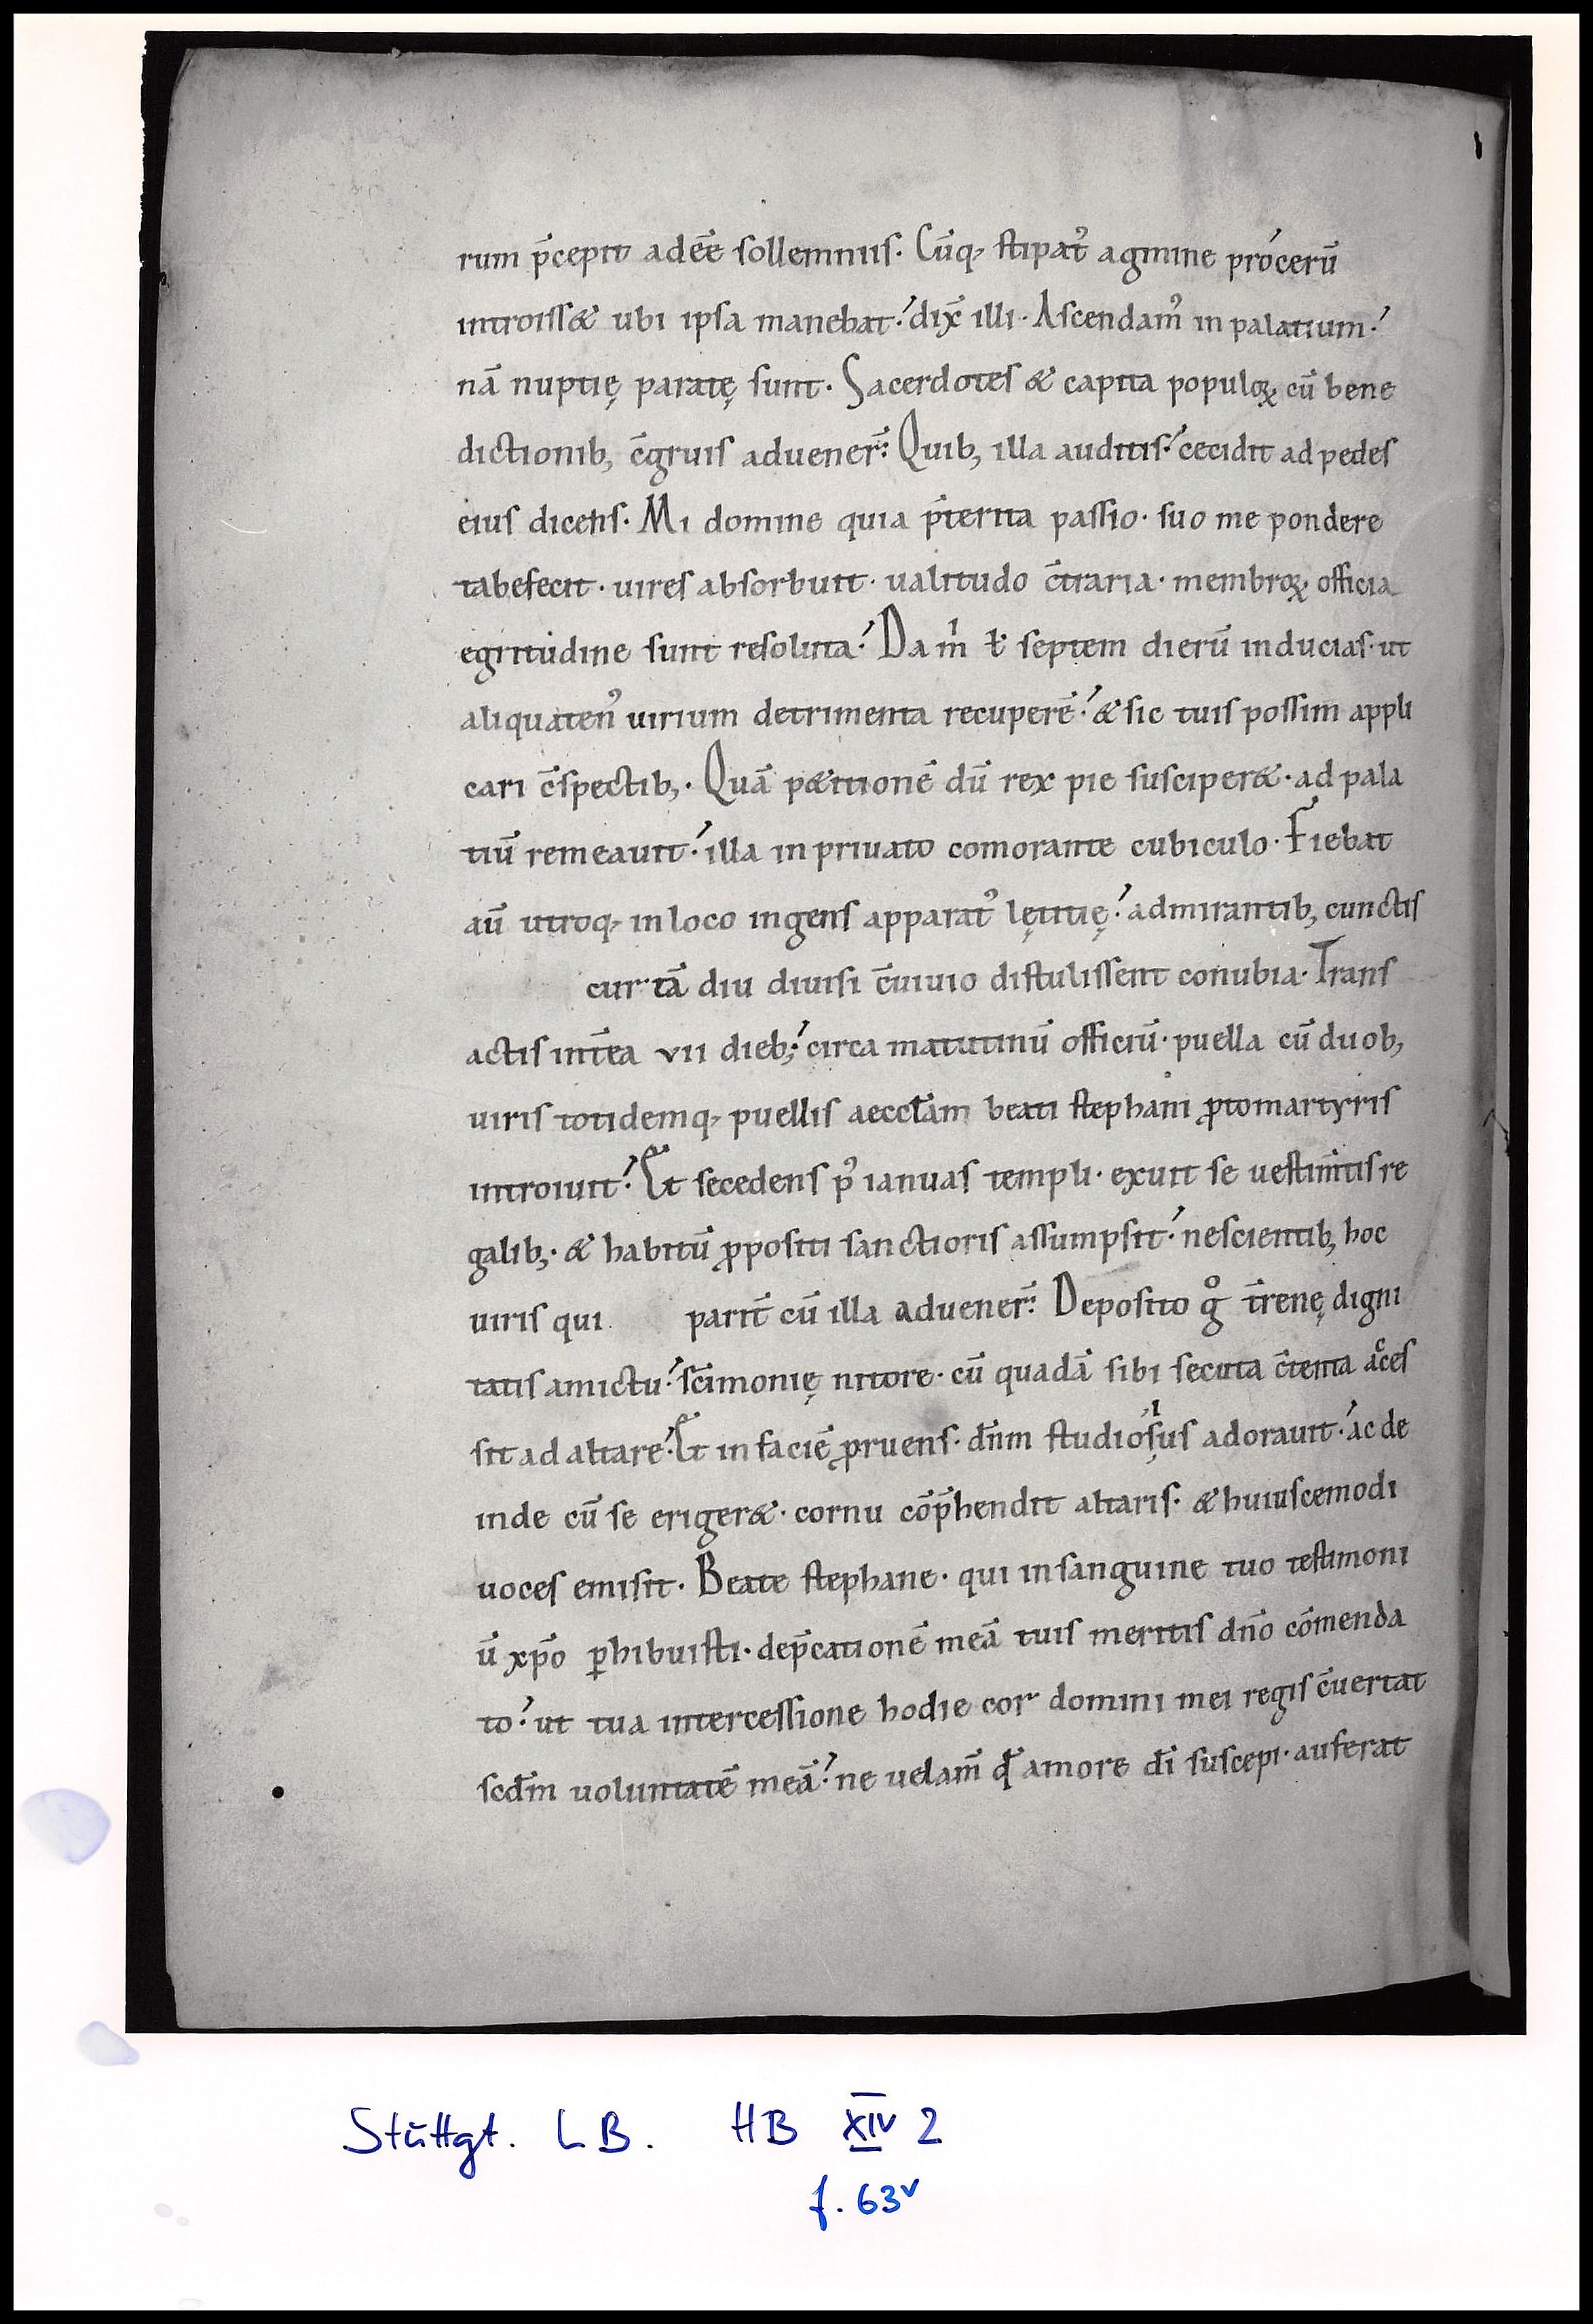 rum p̄cepit adeē sollemniis. Cūq; stipat᾽ agmine procerū
introiss& ubi ipsa manebat. dix̄ illi. Ascendam᾽ in palatium.
nā nuptię paratę sunt. Sacerdotes & capita populoꝝ cū bene
dictionib; c̄gruis aduener̄. Quib; illa auditis. cecidit ad pedes
eius dicens. Mi domine quia p̄terita passio. suo me pondere
tabefecit. uires absorbuit. ualitudo c̄traria. membroꝝ officia
egritudine sunt resoluta. Da m̍ ł septem dierū inducias. ut
aliquaten᾽ uirium detrimenta recuperē. & sic tuis possim appli
cari c̄spectib;. Quā p&itionē dū rex pie susciper&. ad pala
tiū remeauit. illa in priuato comorante cubiculo. Fiebat
aū utroq; in loco ingens apparat᾽ lętitię. admirantib; cunctis
cur tā diu diuisi c̄uiuio distulissent conubia. Trans
actis int̄ea vii dieb;. circa matutinū officiū. puella cū duob;
uiris totidemq; puellis aeccłam beati stephani ꝓtomartyris
introiuit. Et secedens p᾽ ianuas templi. exuit se uestim̄tis re
galib;. & habitū ꝓpositi sanctioris assumpsit. nescientib; hoc
uiris qui parit̄ cū illa aduener̄. Deposito gͦ t̄renę digni
tatis amictu. sc̄imonię nitore. cū quadā sibi secuta c̄tenta acͨes
sit ad altare. Et in faciē ꝓruens. dn̄m studiosius adorauit. ac de
inde cū se eriger&. cornu cōp̄hendit altaris. & huiuscemodi
uoces emisit. Beate stephane. qui in sanguine tuo testimoni
ū xp̄o ꝑhibuisti. dep̄cationē meā tuis meritis dn̄o cōmenda
to. ut tua intercessione hodie cor domini mei regis c̄uertat
scdm̄ uoluntatē meā. ne uelam̄ qd̄ amore dī suscepi. auferat
Stuttgt. LB. HB XIV 2
f. 63v